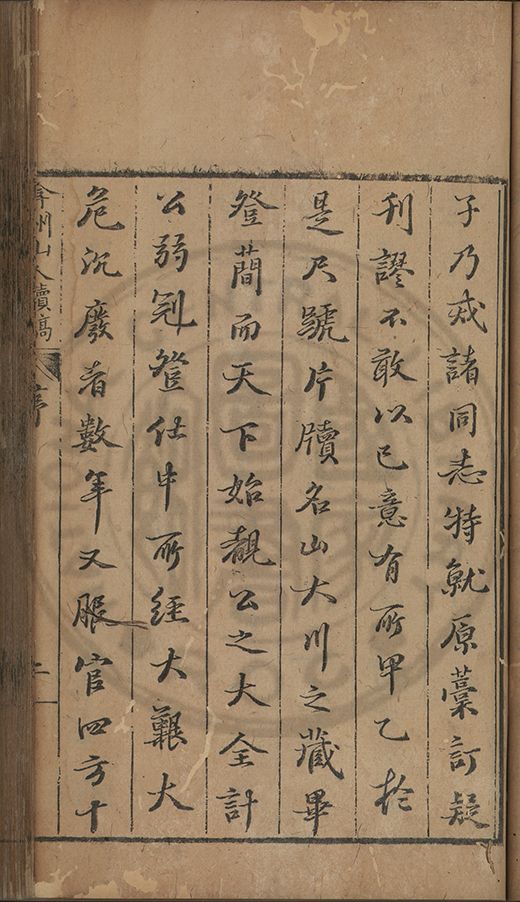 子乃戒諸同志特就原藁訂疑
刊謬不敢以已意有所甲乙於
是尺蹏片牘名山大川之藏畢
登蕳而天下始覩公之大全計
公弱冠登仕中所經大艱大
危沉廢者數年又服官四方十
弇州山人續稿 序